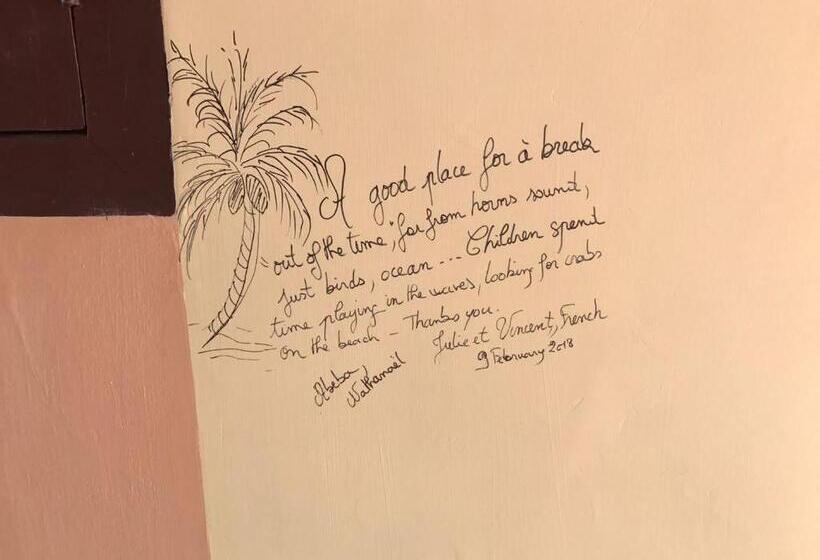 A good place for à break
out of the time, far from horns sound,
just birds, ocean --- Children spend
time playing in the waves, looking for crabs
on the beach - Thanks you.
Julie et Vincent, French
9 February 2018
Abeba,
Nathanaël